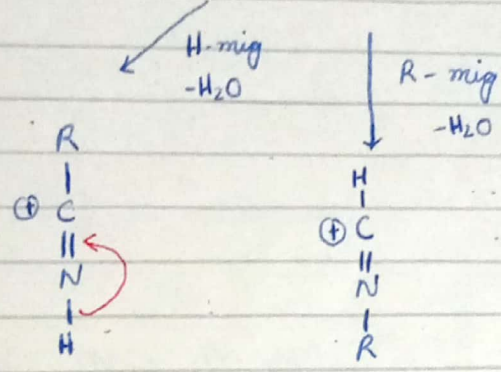 H-mig
-H₂O
R - mig
-H₂O
R
⊕ C
N
H
H
⊕ C
N
R